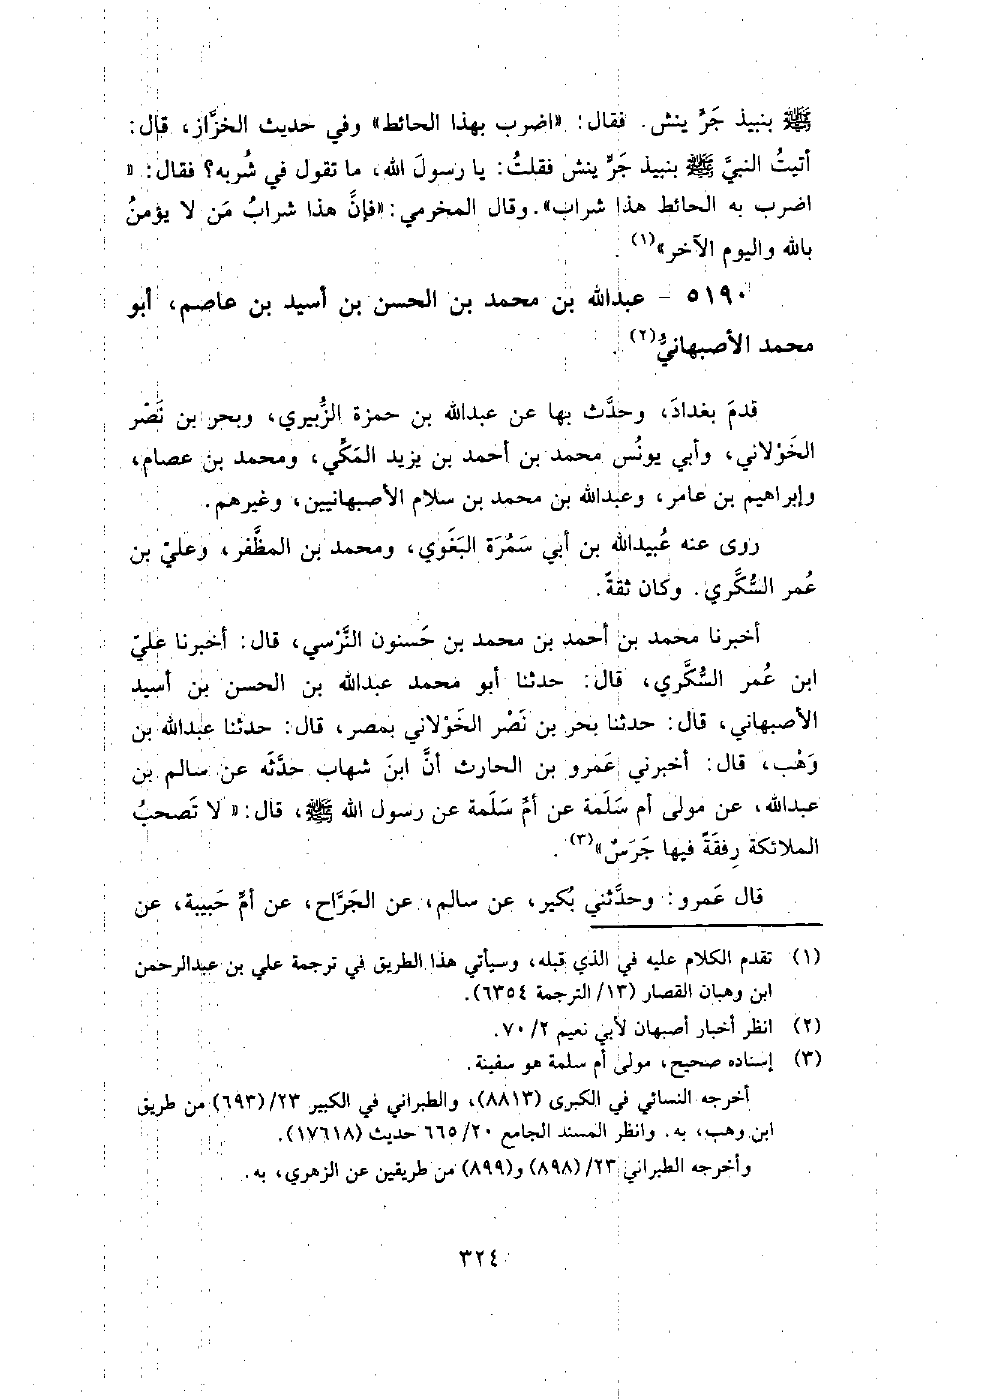 ﷺ بنبيذ جَرٍّ ينش. فقال: «اضرب بهذا الحائط» وفي حديث الخزَّاز، قال:
أتيتُ النبيَّ ﷺ بنبيذ جَرٍّ ينش فقلتُ: يا رسولَ الله، ما تقول في شُربه؟ فقال: «
اضرب به الحائط هذا شراب». وقال المخرمي: «فإنَّ هذا شرابُ مَن لا يؤمنُ
بالله واليوم الآخر»(١) .
٥١٩٠ - عبدالله بن محمد بن الحسن بن أسيد بن عاصم، أبو
محمد الأصبهانيُّ(٢) .
قدمَ بغدادَ، وحدَّث بها عن عبدالله بن حمزة الزُّبيري، وبحر بن نَصْر
الخَوْلاني، وأبي يونُس محمد بن أحمد بن يزيد المَكِّي، ومحمد بن عصام،
وإبراهيم بن عامر، وعبدالله بن محمد بن سلام الأصبهانيين، وغيرهم.
روى عنه عُبيدالله بن أبي سَمُرَة البَغَوي، ومحمد بن المظَّفر، وعليّ بن
عُمر السُّكَّري. وكان ثقةً.
أخبرنا محمد بن أحمد بن محمد بن حَسنون النَّرْسي، قال: أخبرنا عليّ
ابن عُمر السُّكَّري، قال: حدثنا أبو محمد عبدالله بن الحسن بن أسيد
الأصبهاني، قال: حدثنا بحر بن نَصْر الخَوْلاني بمصر، قال: حدثنا عبدالله بن
وَهْب، قال: أخبرني عَمرو بن الحارث أنَّ ابنَ شهاب حدَّثَه عن سالم بن
عبدالله، عن مولى أم سَلَمة عن أمِّ سَلَمة عن رسول الله ﷺ، قال: « لا تَصحبُ
الملائكة رِفقَةً فيها جَرَسٌ»(٣) .
قال عَمرو: وحدَّثني بُكير، عن سالم، عن الجَرَّاح، عن أمِّ حَبيبة، عن
(١) تقدم الكلام عليه في الذي قبله، وسيأتي هذا الطريق في ترجمة علي بن عبدالرحمن
ابن وهبان القصار (١٣/ الترجمة ٦٣٥٤).
(٢) انظر أخبار أصبهان لأبي نعيم ٢/ ٧٠.
(٣) إسناده صحيح، مولى أم سلمة هو سفينة.
أخرجه النسائي في الكبرى (٨٨١٣)، والطبراني في الكبير ٢٣/ (٦٩٣) من طريق
ابن وهب، به. وانظر المسند الجامع ٢٠/ ٦٦٥ حديث (١٧٦١٨).
وأخرجه الطبراني ٢٣/ (٨٩٨) و(٨٩٩) من طريقين عن الزهري، به.
٣٢٤